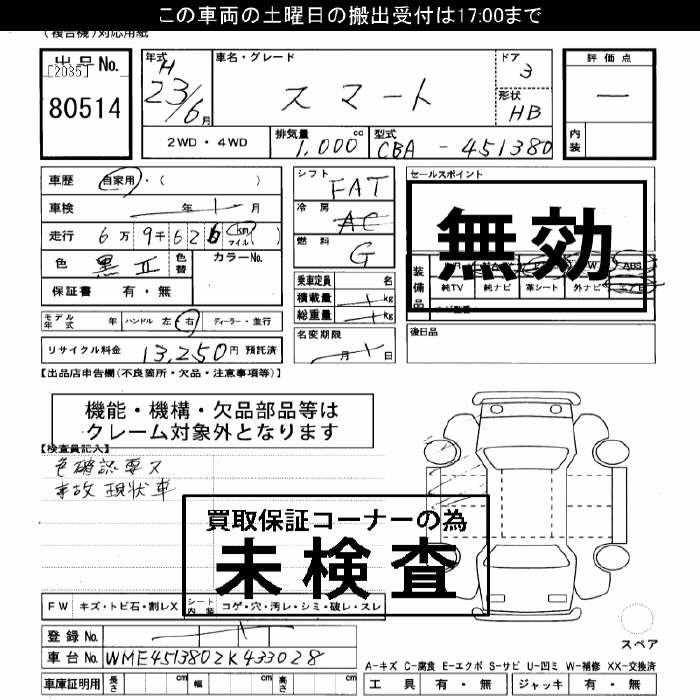 この車両の土曜日の搬出受付は17:00まで
(複合機)対応用紙
出品No.
[2035]
80514
年式
H
23/6月
車名・グレード
スマート
ドア
3
形状
HB
評価点
一
内装
2WD・4WD
排気量
1,000cc
型式
CBA - 451380
車歴 自家用・( )
車検 年 月
走行 6万9千626 km マイル( )
色 黒Ⅱ 色替 カラーNo.
保証書 有・無
シフト FAT
冷房 AC
燃料 G
乗車定員 名
積載量 kg
総重量 kg
名変期限
月 日
セールスポイント
無効
装備品
ABS
純TV 純ナビ 革シート 外ナビ
後日品
モデル年式 年 ハンドル 左 右 ディーラー・並行
リサイクル料金 13,250円 預託済
【出品店申告欄(不良箇所・欠品・注意事項等)】
機能・機構・欠品部品等は
クレーム対象外となります
【検査員記入】
色確認要ス
事故 現状車
買取保証コーナーの為
未検査
FW キズ・トビ石・割レX シート内装 コゲ・穴・汚レ・シミ・破レ・スレ
登録No.
車台No. WME4513802K433028
車庫証明用 長さ cm 幅 cm 高さ cm
スペア
A-キズ C-腐食 E-エクボ S-サビ U-凹ミ W-補修 XX-交換済
工具 有・無 ジャッキ 有・無